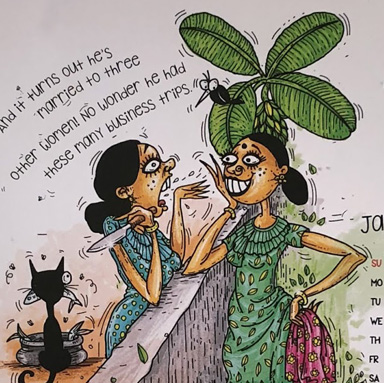 And it turns out he's
married to three
other women! No wonder he had
these many business trips.
JA
SU
MO
TU
WE
TH
FR
SA